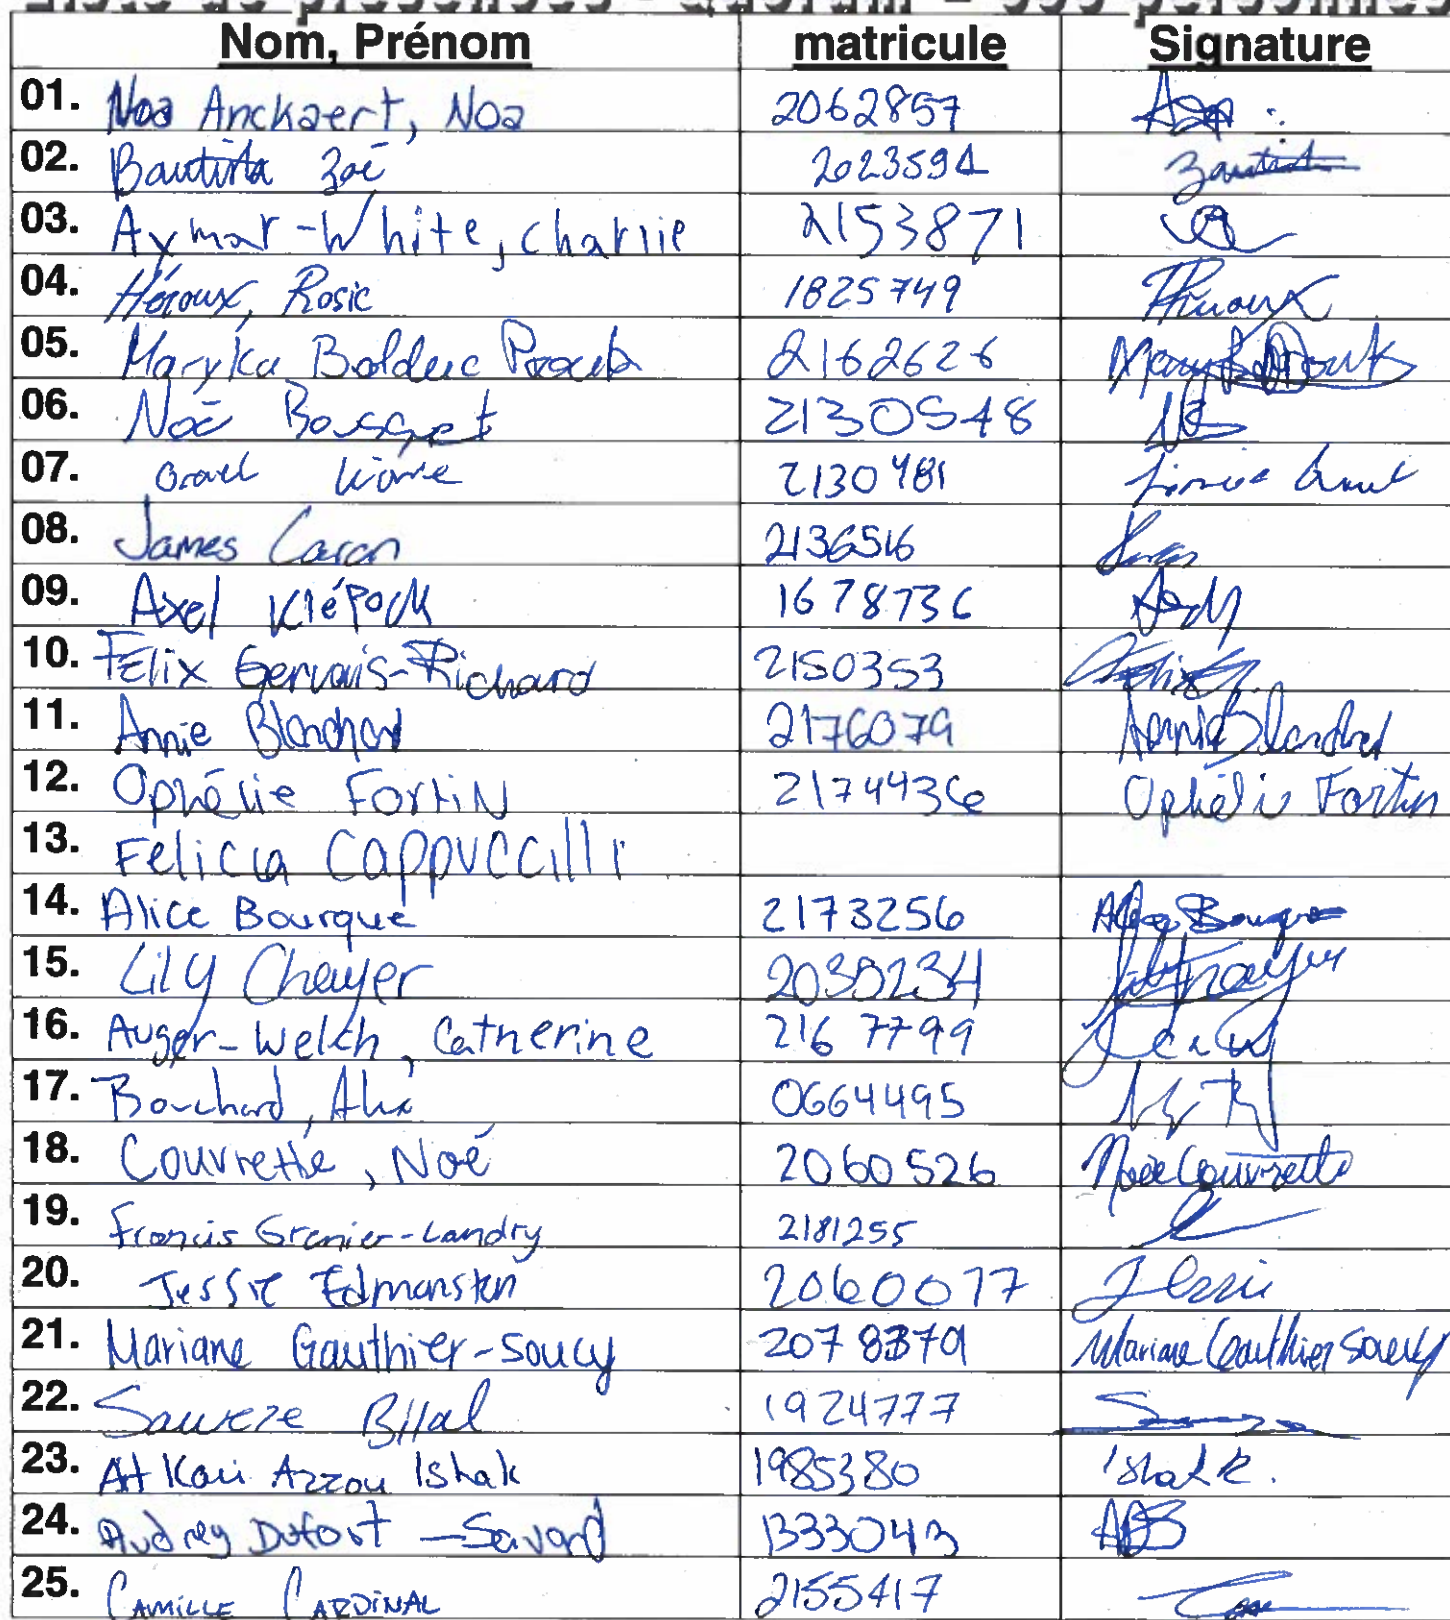 Liste de présences - Quorum -
Nom, Prénom matricule Signature
01. Noa Anckaert, Noa 2062857
02. Bautista Zoé 2023594
03. Aymar-White, Charlie 2153871
04. Héroux, Rosie 1825749 RHéroux
05. Maryka Bolduc Proulx 2162626
06. Noé Bousquet 2130548
07. 2130481
08. James Caron 2136516
09. Axel Klépock 1678736
10. Félix Gervais-Richard 2150353
11. Annie Blanchard 2176079 Annie Blanchard
12. Ophélie Fortin 2174436 Ophélie Fortin
13. Felicia Cappuccilli
14. Alice Bourque 2173256 Alice Bourque
15. Lily Chayer 2039234
16. Auger-Welch, Catherine 2167799
17. Bouchard, Alix 0664495
18. Couvrette, Noé 2060526 Noée Couvrette
19. Francis Grenier-Landry 2181255
20. Jessie Edmonston 2060077 Jessie
21. Mariane Gauthier-Soucy 2078379 Mariane Gauthier Soucy
22. Saweze Bilal 1924777
23. Ait Kaci Azzou Ishak 1985380 Ishak.
24. Audrey Dufort-Savard 1333043 ADS
25. Camille Cardinal 2155417